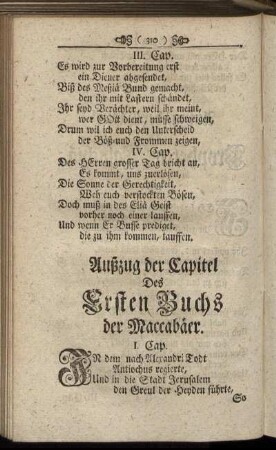 ( 310 )
III. Cap.
Es wird zur Vorbereitung erst
ein Diener abgesendet,
Biß des Meßiä Bund gemacht,
den ihr mit Lastern schändet,
Ihr seyd Verächter, weil ihr meint,
wer GOtt dient, müsse schweigen,
Drum wil ich euch den Unterscheid
der Böß-und Frommen zeigen,
IV. Cap.
Des HErren grosser Tag bricht an,
Es kommt, uns zuerlösen,
Die Sonne der Gerechtigkeit,
Weh euch verstockten Bösen,
Doch muß in des Eliä Geist
vorher noch einer lauffen,
Und wenn Er Busse prediget,
die zu ihm kommen, tauffen.
Außzug der Capitel
Des
Ersten Buchs
der Maccabäer.
I. Cap.
IN dem nach Alexandri Todt
Antiochus regierte,
Und in die Stadt Jerusalem
den Greul der Heyden führte,
So